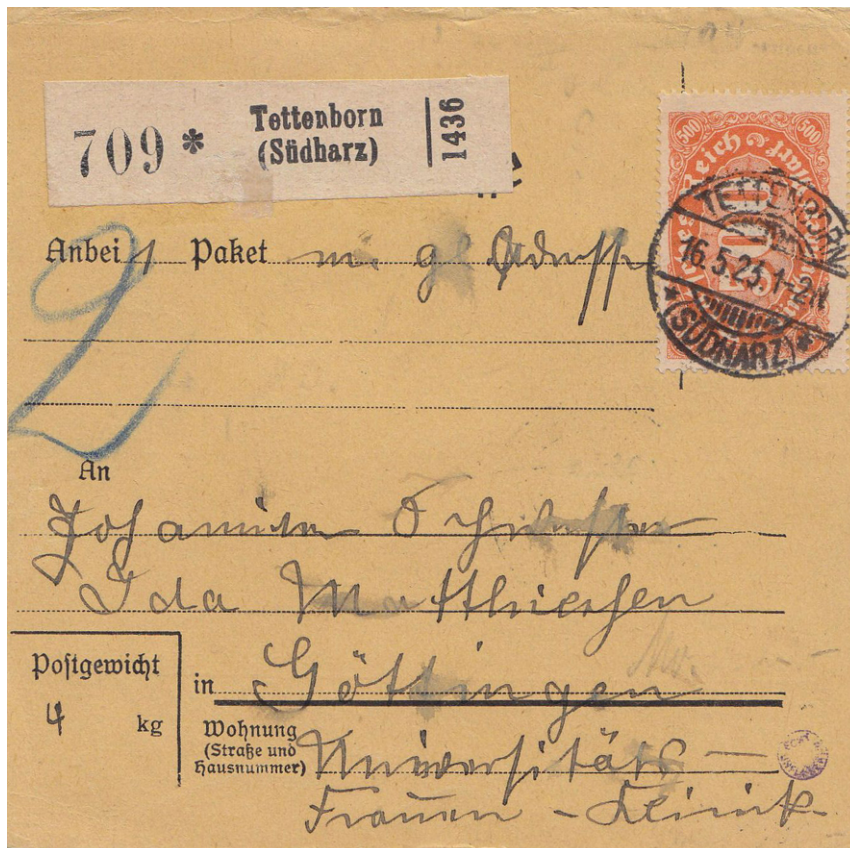 709 * Tettenborn
(Südharz)
1436
500 500
TETTENBORN
16.5.23.1-2N
* (SÜDHARZ) *
Anbei 1 Paket
2
An
Johanniter Schwester
Ida Matthiessen
Postgewicht
4 kg
in Göttingen
Wohnung
(Straße und
Hausnummer)
Universitäts-
Frauen-Klinik.